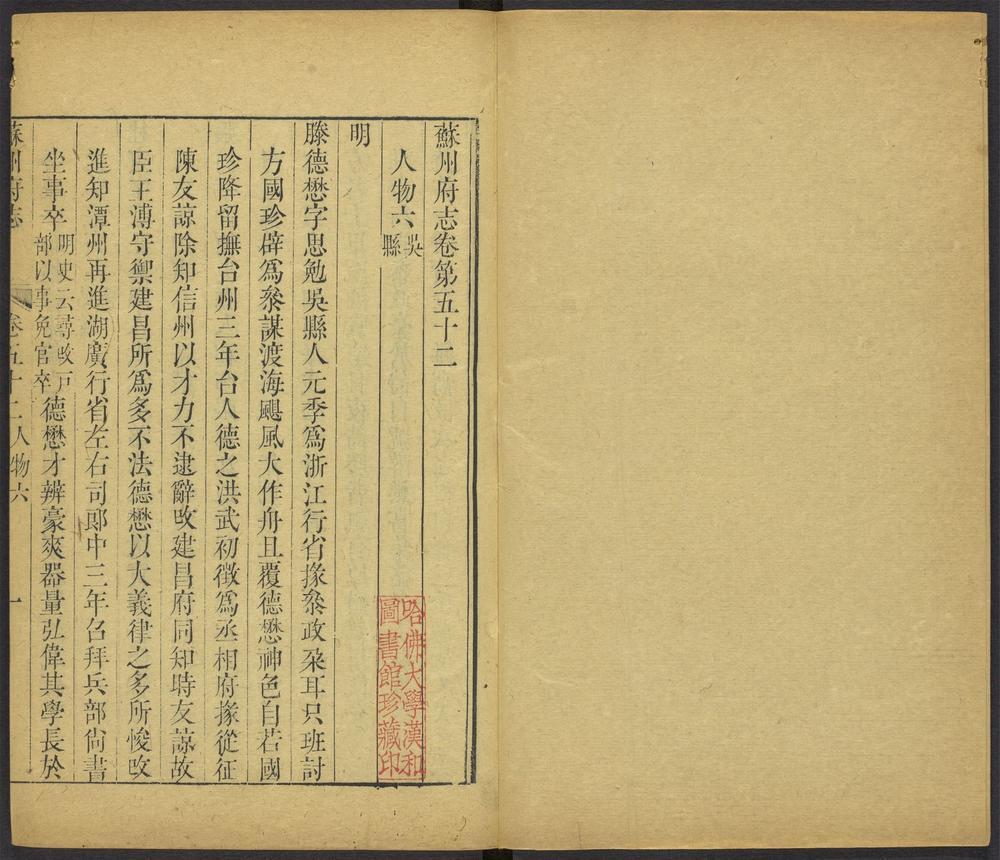 蘇州府志卷第五十二
人物六 吳縣
明
滕德懋字思勉吳縣人元季爲浙江行省掾叅政朶耳只班討
方國珍辟爲叅謀渡海颶風大作舟且覆德懋神色自若國
珍降留撫台州三年台人德之洪武初徵爲丞相府掾從征
陳友諒除知信州以才力不逮辭改建昌府同知時友諒故
臣王溥守禦建昌所爲多不法德懋以大義律之多所悛改
進知潭州再進湖廣行省左右司郎中三年召拜兵部尙書
坐事卒明史云尋改戸部以事免官卒德懋才辨豪爽器量弘偉其學長於
蘇州府志 卷五十二人物六 一
哈佛大學漢和
圖書館珍藏印